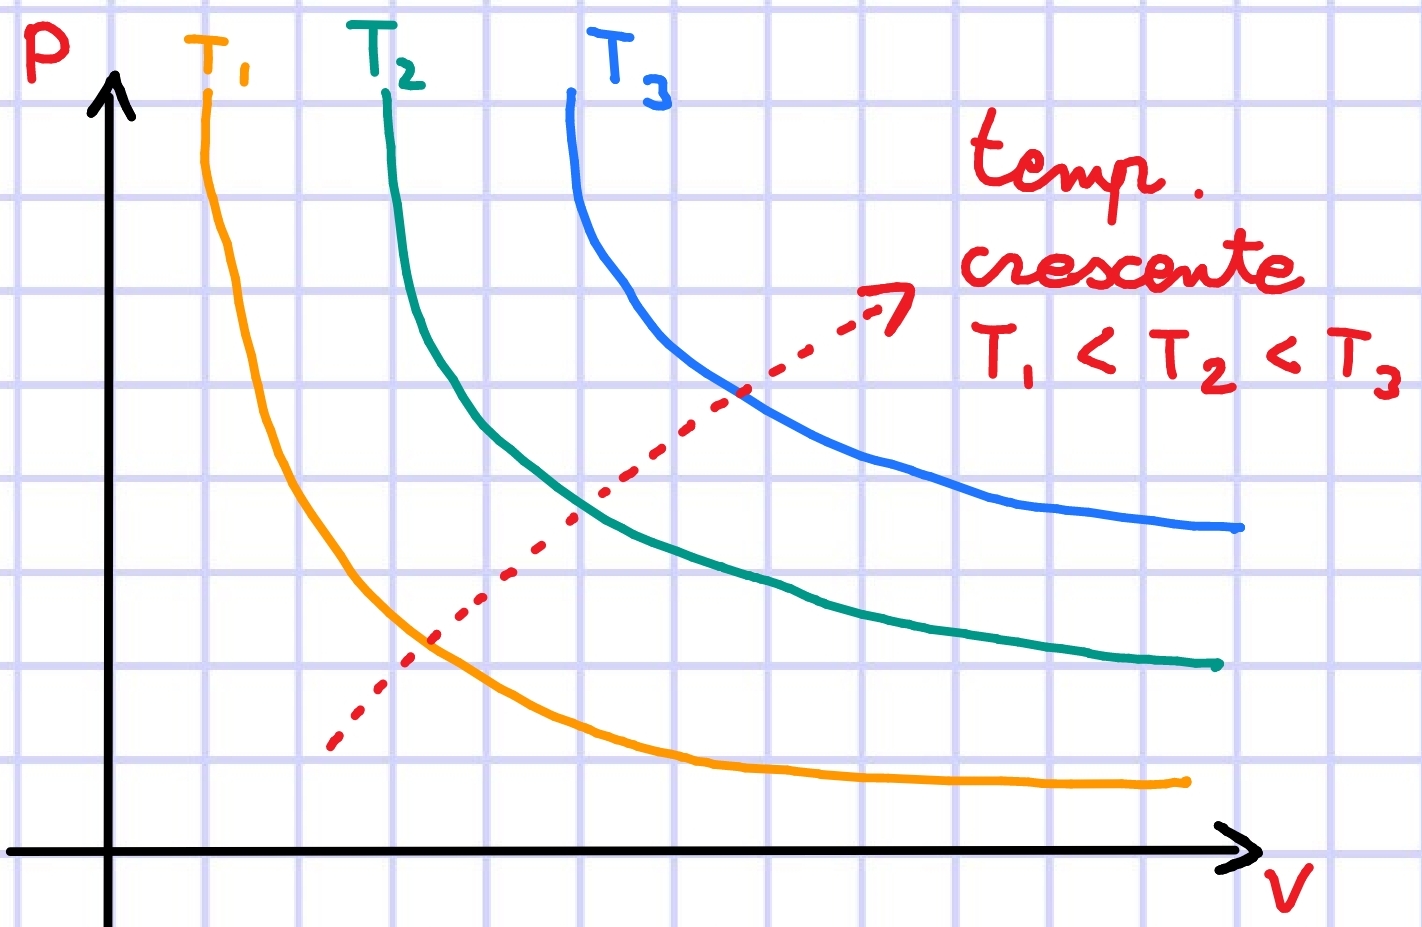 P
T1
T2
T3
temp.
crescente
T1 < T2 < T3
V